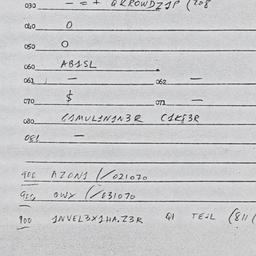 030 — = + QKROWDZ1P (208
040 0
050 0
060 AB1SL
061 — 062 —
070 $ 071 —
080 C1MUL1N1N3R C1K83R
081 —
900 AZON1 (/021070
QWX (/031070
900 1NVEL3X1HA.Z3R Q1 TE2L (811